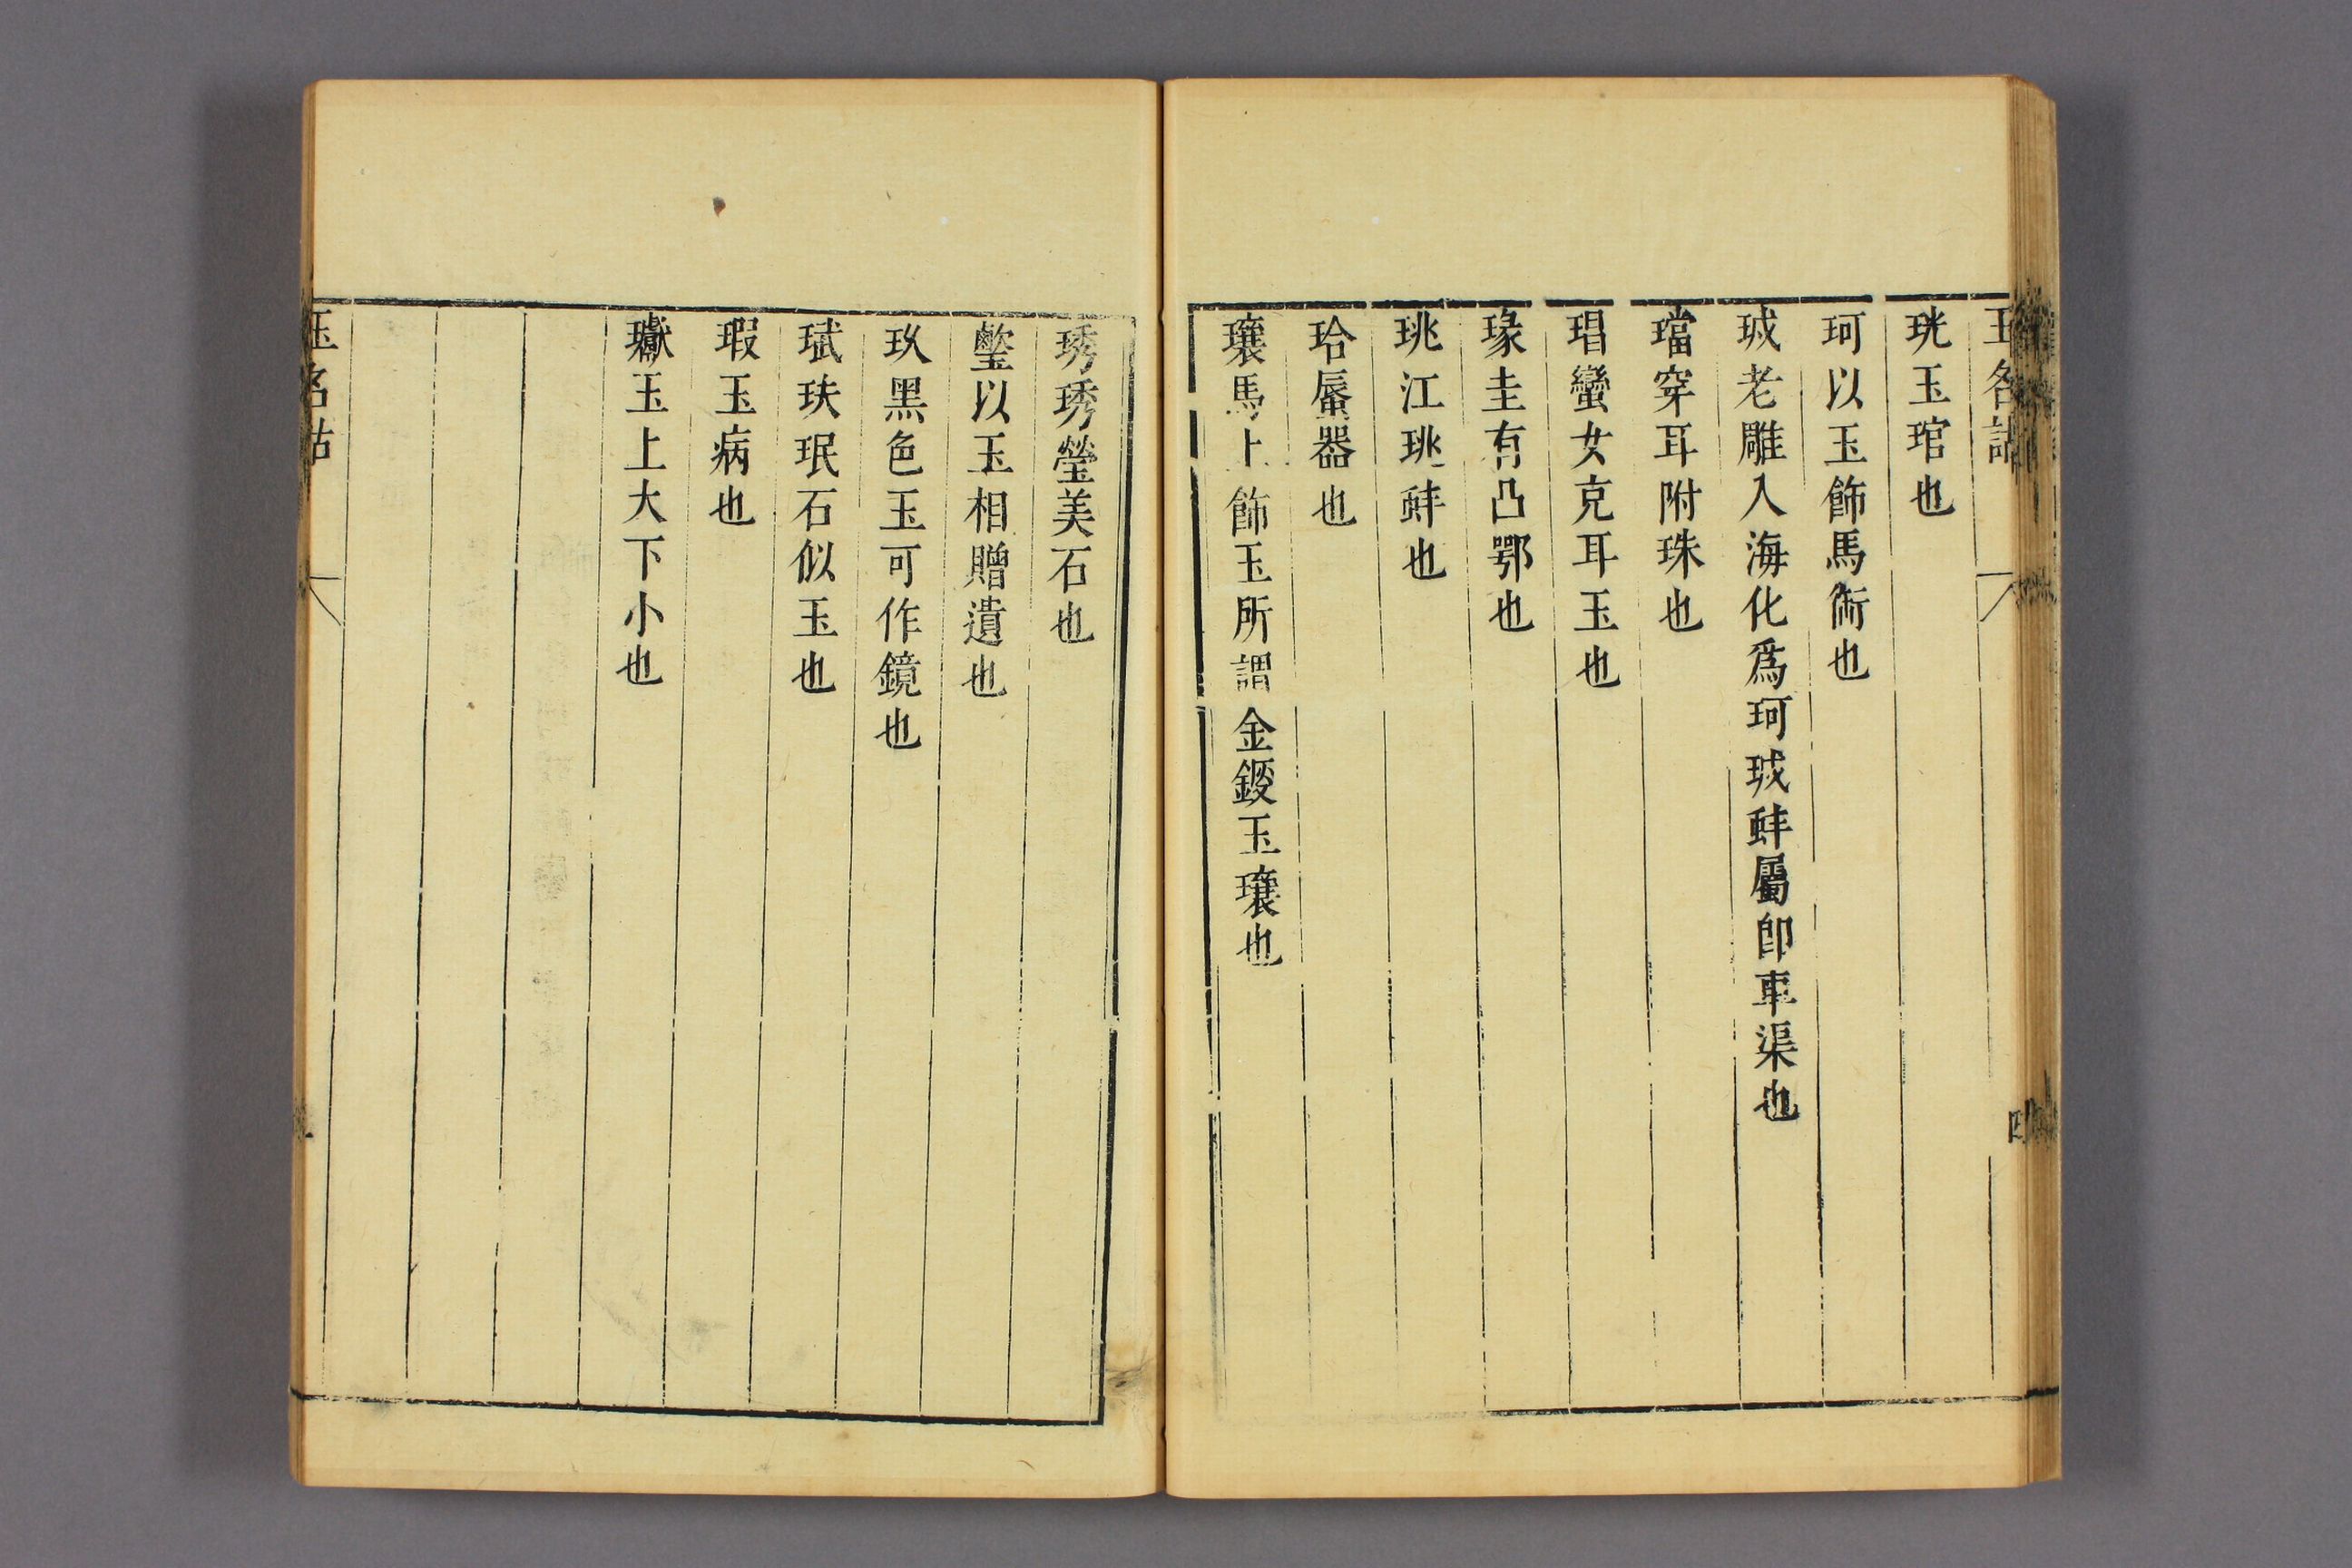 玉名詁
四
珖玉琯也
珂以玉飾馬衘也
珹老雕入海化爲珂珹蚌屬卽車渠也
璫穿耳附珠也
琩蠻女克耳玉也
瑑圭有凸鄂也
珧江珧蚌也
珨蜃器也
瓖馬上飾玉所謂金鋄玉瓖也
琇琇瑩美石也
以玉相贈遺也
玖黑色玉可作鏡也
珷玞珉石似玉也
瑕玉病也
瓛玉上大下小也
玉名詁